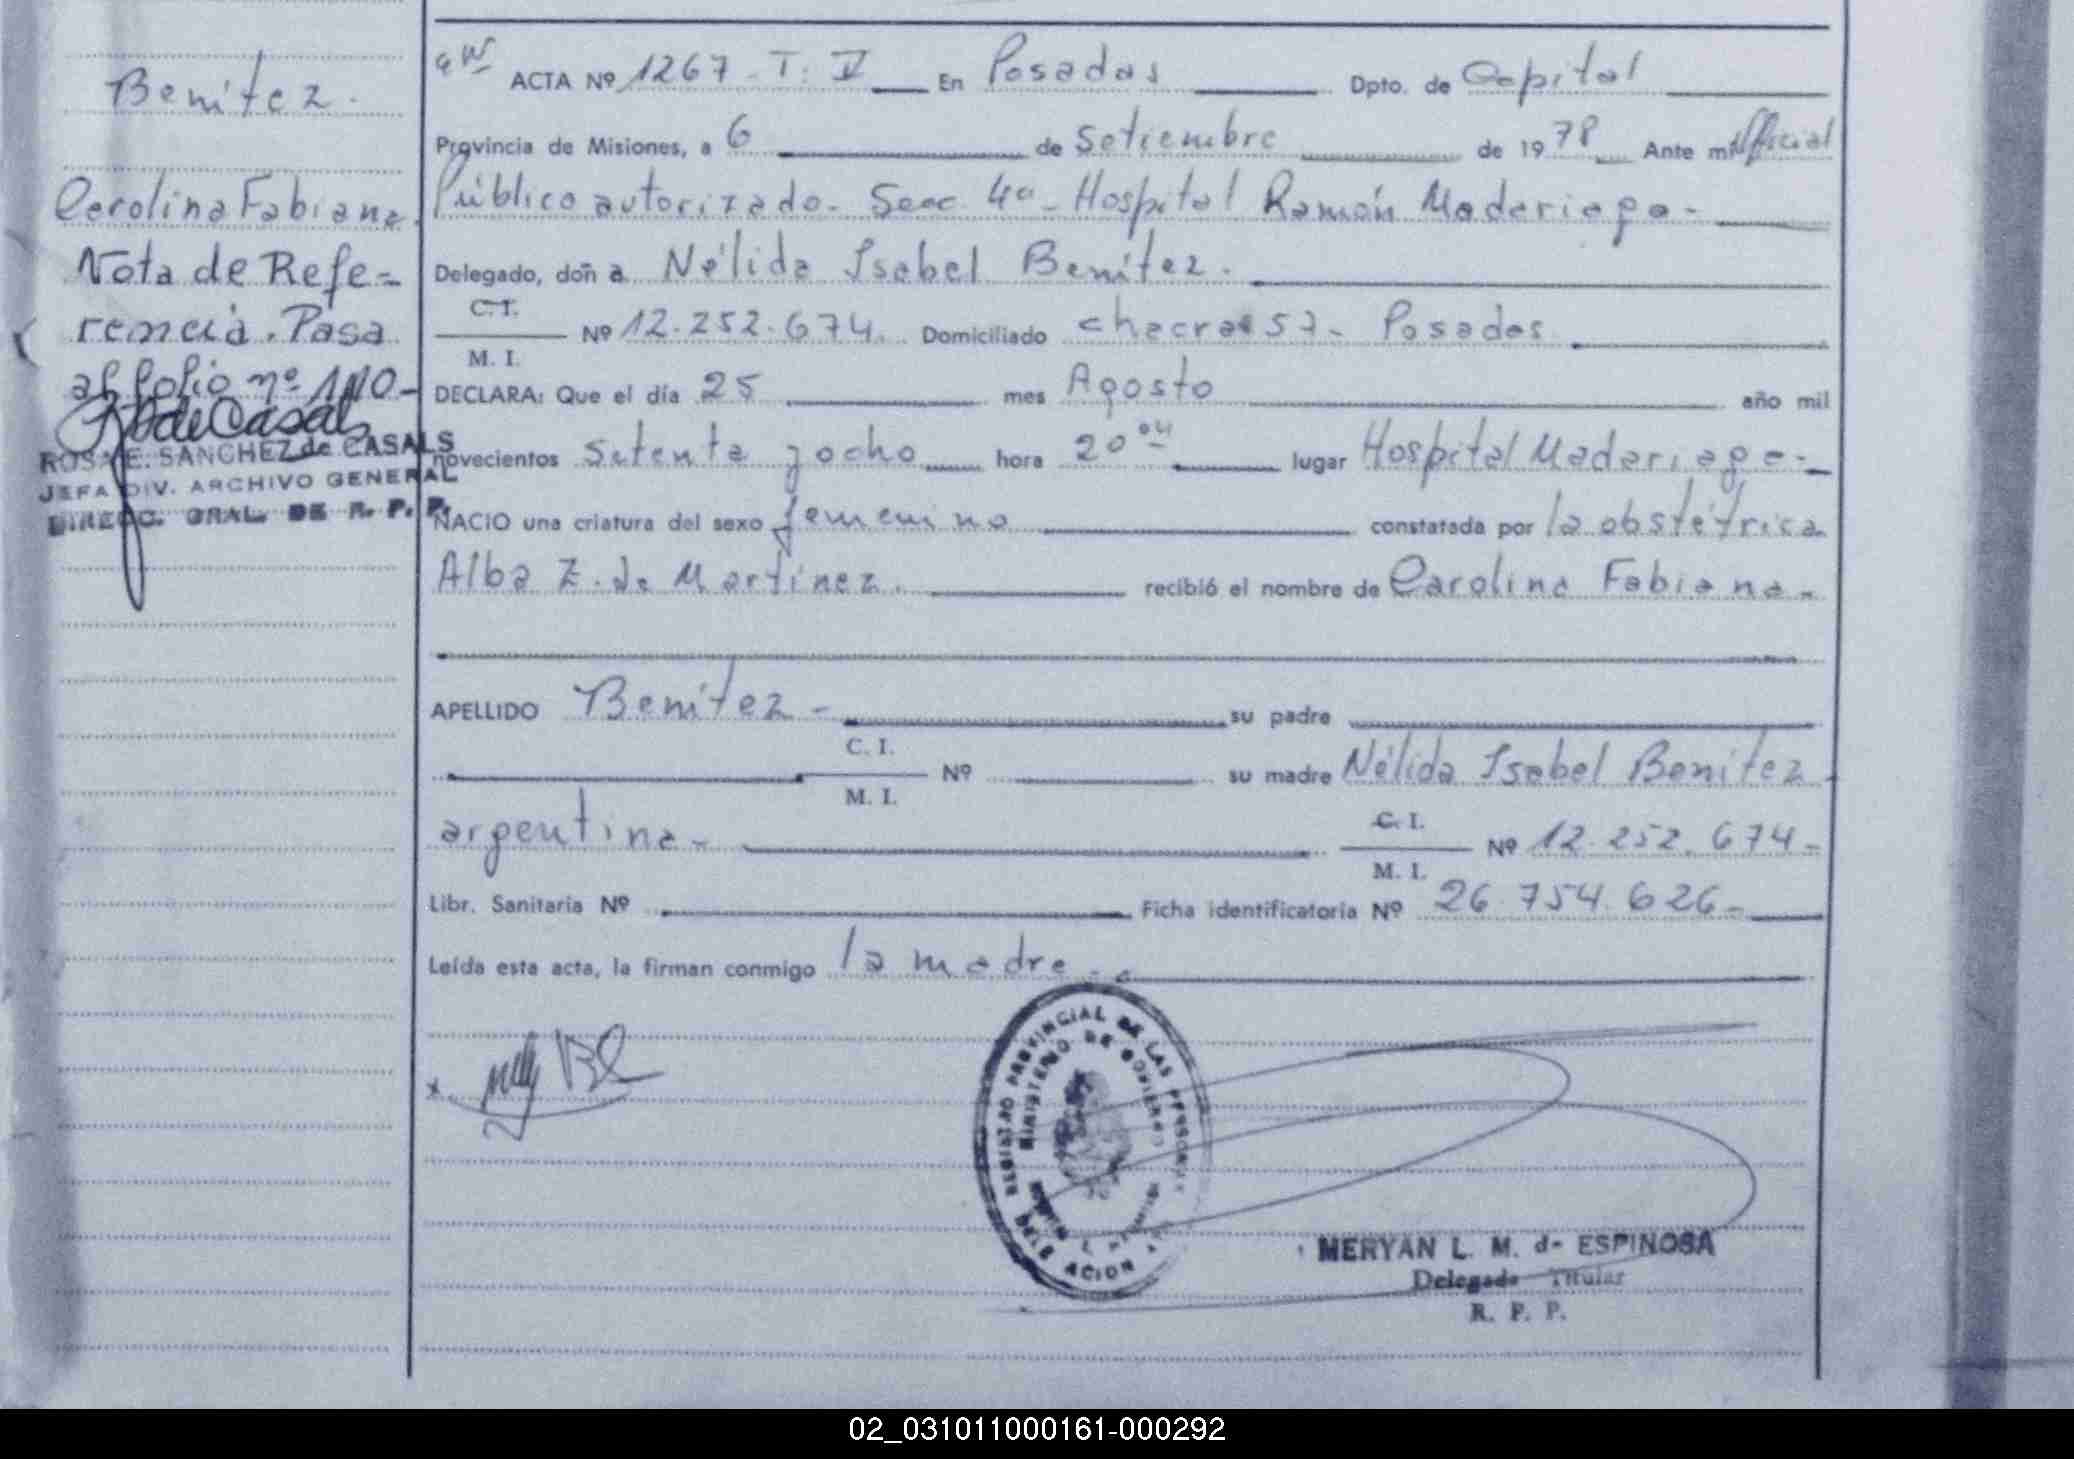 Benítez.
Carolina Fabiana.
Nota de Refe=
rencia. Pasa
al folio nº 110-
ROSA E. SANCHEZ de CASALS
JEFA DIV. ARCHIVO GENERAL
DIRECC. GRAL. DE R. P. P.
ACTA Nº 1267 - T: V En Posadas Dpto. de Capital
Provincia de Misiones, a 6 de Setiembre de 1978 Ante mí Oficial
Público autorizado - Secc. 4ª - Hospital Ramón Madariaga -
Delegado, doña Nélida Isabel Benítez.
C. I.
Nº 12.252.674. Domiciliado chacra 57 - Posadas
M. I.
DECLARA: Que el día 25 mes Agosto año mil
novecientos setenta y ocho hora 20 04 lugar Hospital Madariaga -
NACIO una criatura del sexo femenino constatada por la obstétrica
Alba Z. de Martínez. recibió el nombre de Carolina Fabiana -
APELLIDO Benítez - su padre
C. I.
Nº su madre Nélida Isabel Benítez
M. I.
argentina -
C. I.
Nº 12.252.674 -
M. I.
Libr. Sanitaria Nº Ficha identificatoria Nº 26.754.626 -
Leída esta acta, la firman conmigo la madre -
x
REGISTRO PROVINCIAL DE LAS PERSONAS
MINISTERIO DE GOBIERNO
MERYAN L. M. de ESPINOSA
Delegada Titular
R. P. P.
02_031011000161-000292